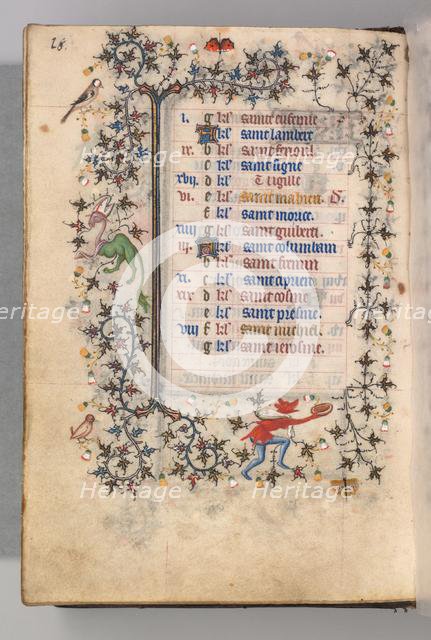 18.
i. g kl' saint eufemie
A kl' saint lambert
ix. b kl' saint feriol
c kl' saint signe
xvij d kl' Vigille
vi. e kl' saint mahieu. D.
f kl' saint morice.
xiiij g kl' saint
iij. A kl' saint columbain
b kl' saint fremin
xi. c kl' saint
xix d kl' saint cosme
e kl' saint
viij f kl' saint michiel
g kl' saint ierosme.
Heritage
Heritage
Heritage
Heritage
Heritage
Heritage